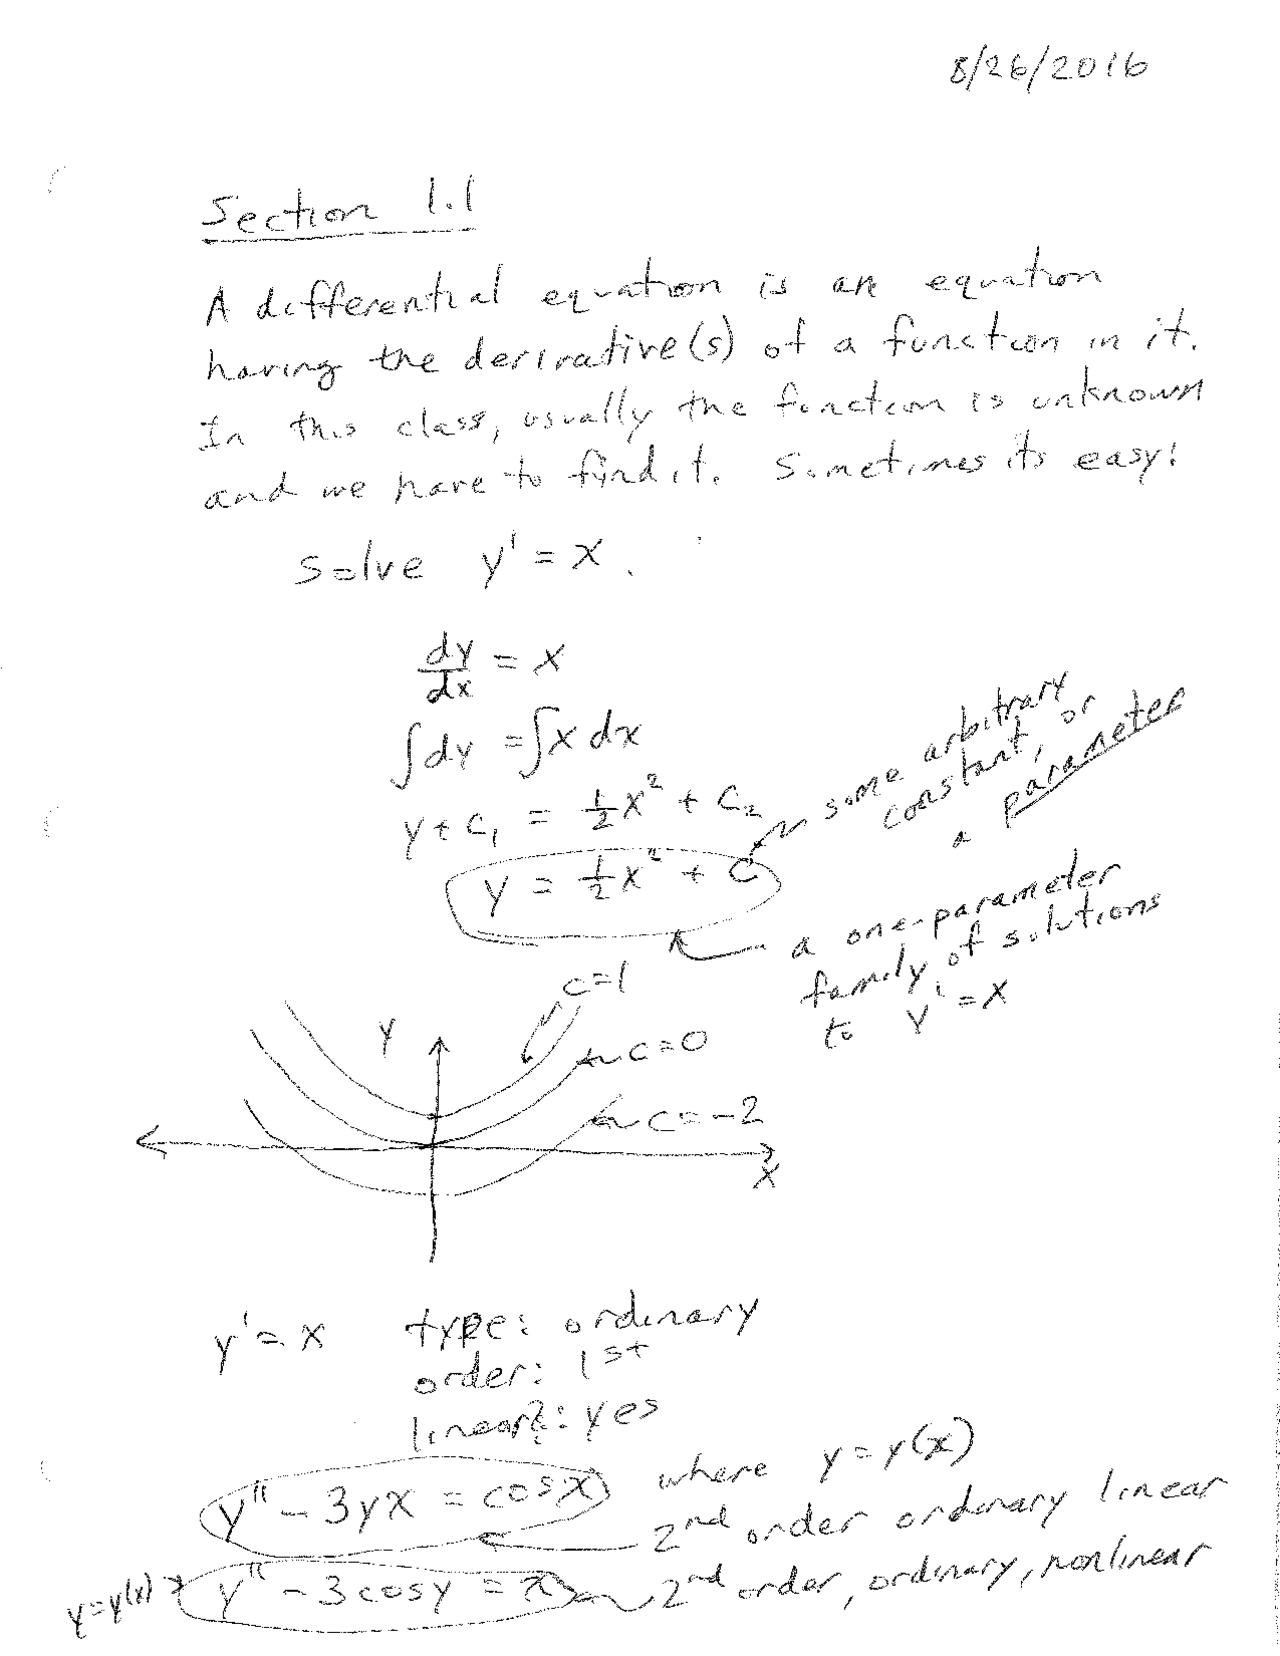 8/26/2016
Section 1.1
A differential equation is an equation
having the derivative(s) of a function in it.
In this class, usually the function is unknown
and we have to find it. Sometimes its easy!
Solve y' = x.
dy/dx = x
∫dy = ∫x dx
y + C₁ = ½x² + C₂
some arbitrary
constant, or
a parameter
y = ½x² + C
a one-parameter
family of solutions
to y' = x
c=1
y
c=0
c=-2
x
y' = x type: ordinary
order: 1st
linear?: yes
y'' - 3yx = cosx where y = y(x)
2nd order ordinary linear
y=y(x) → y'' - 3cosy = x 2nd order, ordinary, nonlinear